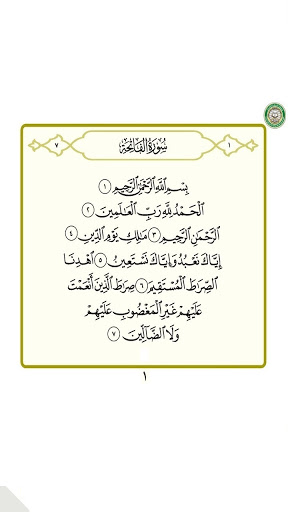 ٧ سُورَةُ الفَاتِحَةِ ١
بِسْمِ ٱللَّهِ ٱلرَّحْمَٰنِ ٱلرَّحِيمِ ١
ٱلْحَمْدُ لِلَّهِ رَبِّ ٱلْعَٰلَمِينَ ٢
ٱلرَّحْمَٰنِ ٱلرَّحِيمِ ٣ مَٰلِكِ يَوْمِ ٱلدِّينِ ٤
إِيَّاكَ نَعْبُدُ وَإِيَّاكَ نَسْتَعِينُ ٥ ٱهْدِنَا
ٱلصِّرَٰطَ ٱلْمُسْتَقِيمَ ٦ صِرَٰطَ ٱلَّذِينَ أَنْعَمْتَ
عَلَيْهِمْ غَيْرِ ٱلْمَغْضُوبِ عَلَيْهِمْ
وَلَا ٱلضَّآلِّينَ ٧
١